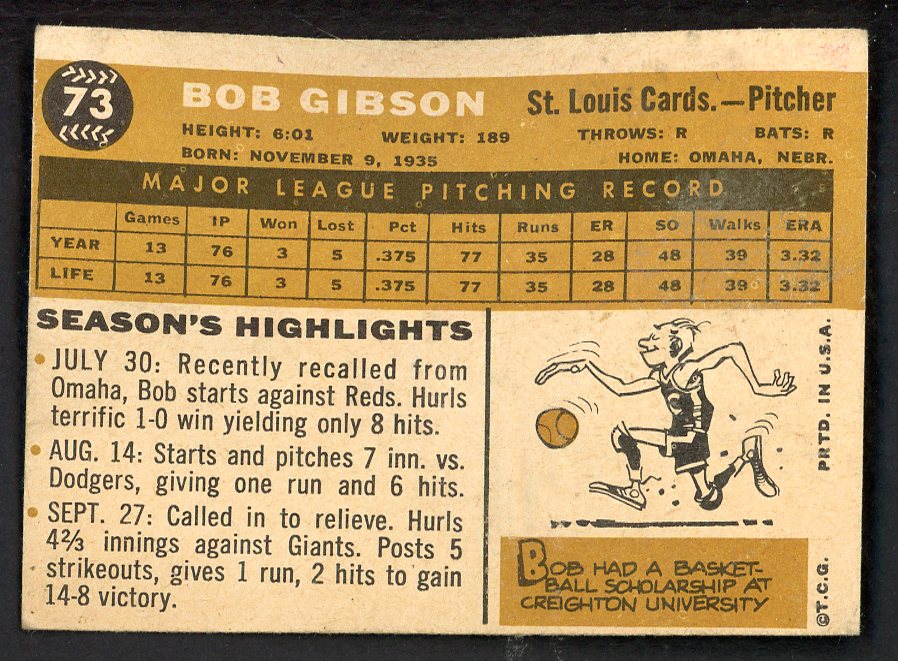 73
BOB GIBSON St. Louis Cards.—Pitcher
HEIGHT: 6:01 WEIGHT: 189 THROWS: R BATS: R
BORN: NOVEMBER 9, 1935 HOME: OMAHA, NEBR.
MAJOR LEAGUE PITCHING RECORD
Games IP Won Lost Pct Hits Runs ER SO Walks ERA
YEAR 13 76 3 5 .375 77 35 28 48 39 3.32
LIFE 13 76 3 5 .375 77 35 28 48 39 3.32
SEASON'S HIGHLIGHTS
• JULY 30: Recently recalled from
Omaha, Bob starts against Reds. Hurls
terrific 1-0 win yielding only 8 hits.
• AUG. 14: Starts and pitches 7 inn. vs.
Dodgers, giving one run and 6 hits.
• SEPT. 27: Called in to relieve. Hurls
4⅔ innings against Giants. Posts 5
strikeouts, gives 1 run, 2 hits to gain
14-8 victory.
BOB HAD A BASKET-
BALL SCHOLARSHIP AT
CREIGHTON UNIVERSITY
©T.C.G. PRTD. IN U.S.A.